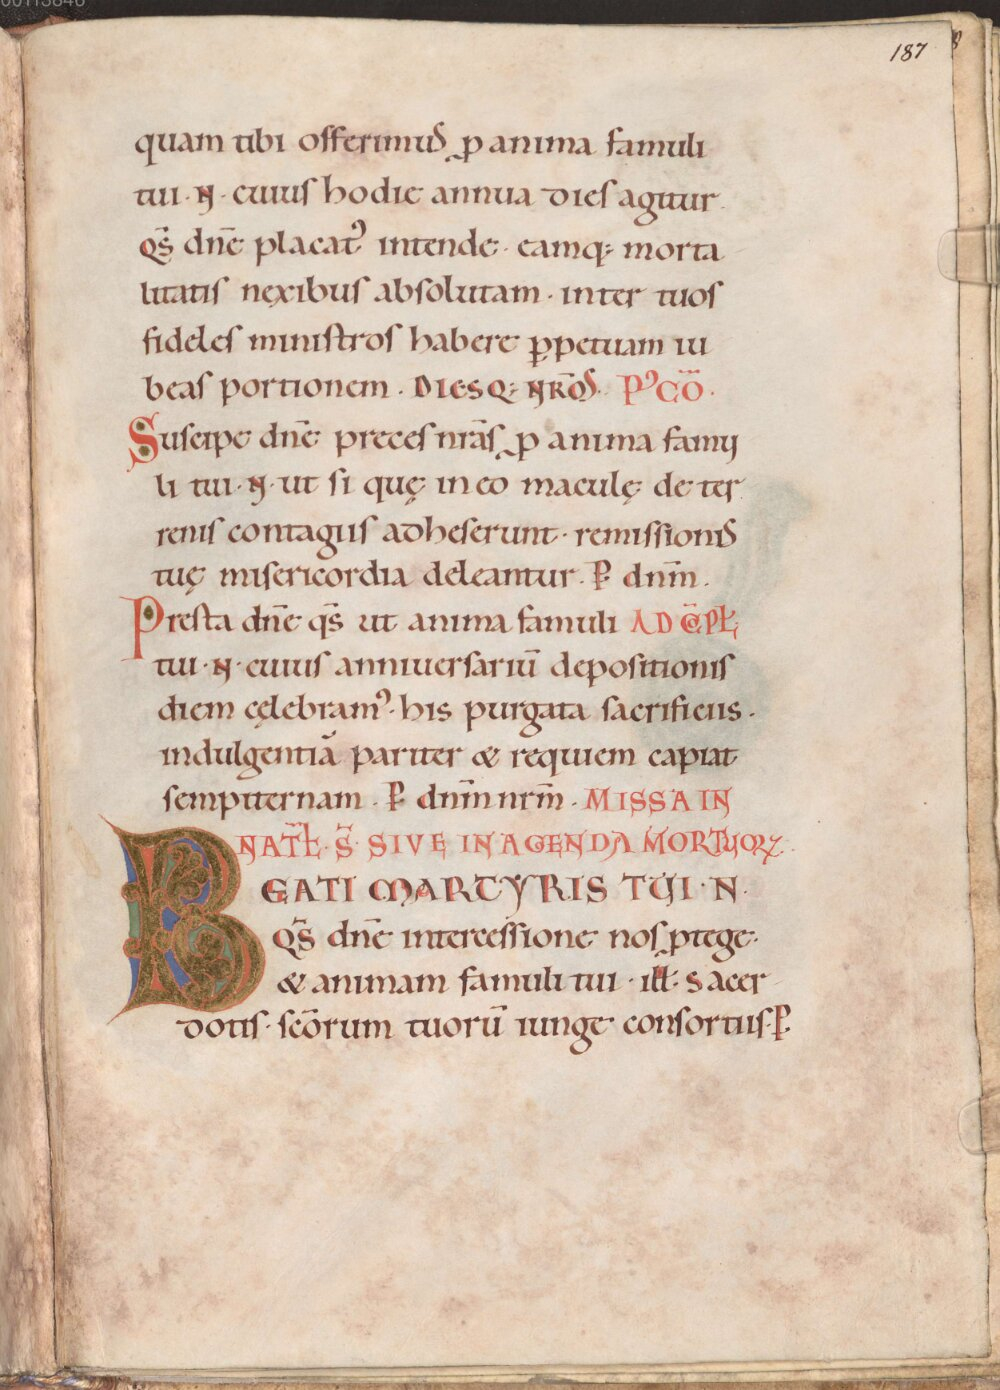 00113846
187
quam tibi offerimus ꝓ anima famuli
tui · N · cuius hodie annua dies agitur
q̄s dn̄e placatꝰ intende · eamq; morta
litatis nexibus absolutam · inter tuos
fideles ministros habere ꝑpetuam iu
beas portionem · DIESQ; NR̄OS · PꝰCŌ ·
Suscipe dn̄e preces nr̄as ꝓ anima famu
li tui · N · ut si quę in eo maculę de ter
renis contagiis adheserunt · remissionis
tuę misericordia deleantur · P̱ dn̄m ·
Presta dn̄e q̄s ut anima famuli AD C̄PŁ
tui · N · cuius anniuersariū depositionis
diem cęlebramꝰ · his purgata sacrificiis ·
indulgentiā pariter & requiem capiat
sempiternam · P̱ dn̄m nr̄m · MISSA IN
NAT̄Ł · S̄ · SIVE IN AGENDA MORTUORꝜ
BEATI MARTYRIS TUI · N ·
Q̄S dn̄e intercessione nos ꝓtege ·
& animam famuli tui · ilł · sacer
dotis · sc̄orum tuorū iunge consortiis · P̱